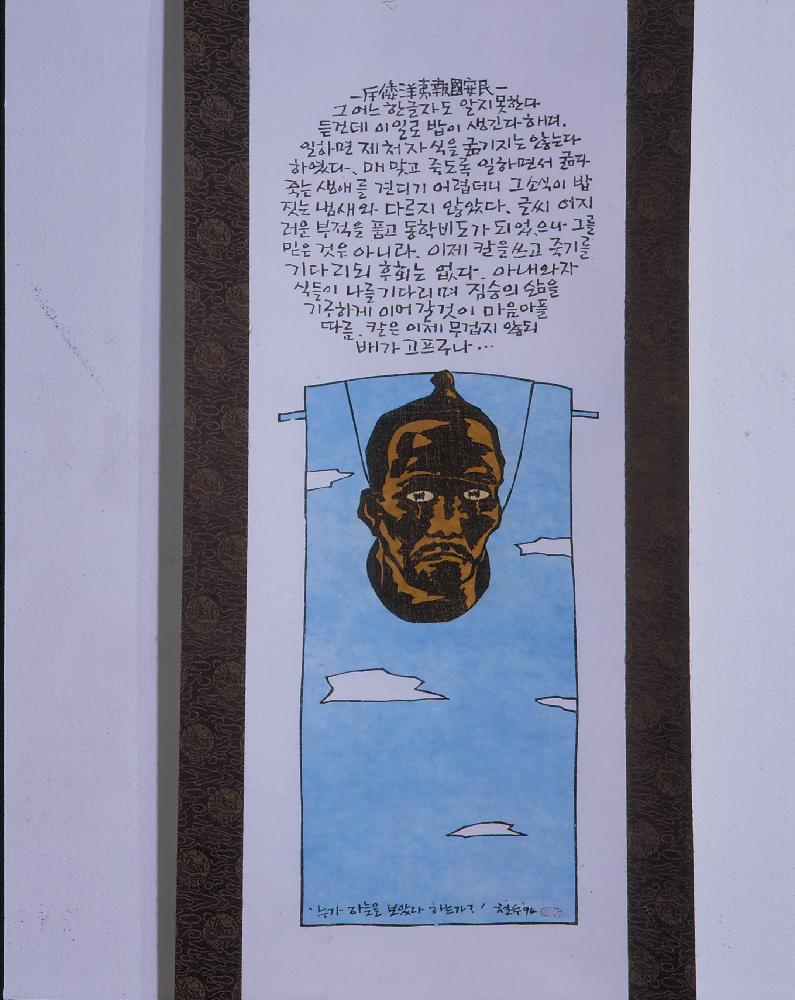 -斥倭洋東報國安民-
그 어느 한글자도 알지못한다
듣건데 이일로 밥이 생긴다하며,
일하면 제처자식을 굶기지는 않는다
하였다. 매 맞고 죽도록 일하면서 굶다
죽는 생애를 견디기 어렵더니 그소식이 밥
짓는 냄새와 다르지 않았다. 글씨 어지
러운 부적을 품고 동학비도가 되었으나 그를
믿은 것은 아니라. 이제 칼을쓰고 죽기를
기다리되 후회는 없다. 아내와자
식들이 나를기다리며 짐승의 삶을
기구하게 이어갈것이 마음아플
따름. 칼은 이제 무겁지 않되
배가 고프구나...
'누가 하늘을 보았다 하는가?' 철수 '94